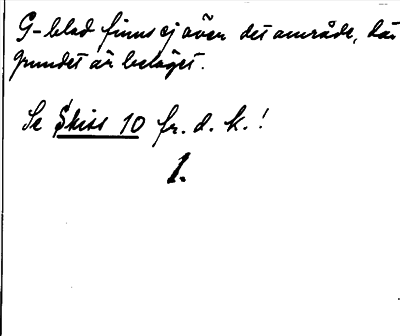 G-blad finns ej över det område, där
grundet är beläget.
Se Skiss 10 fr. d. k.!
1.